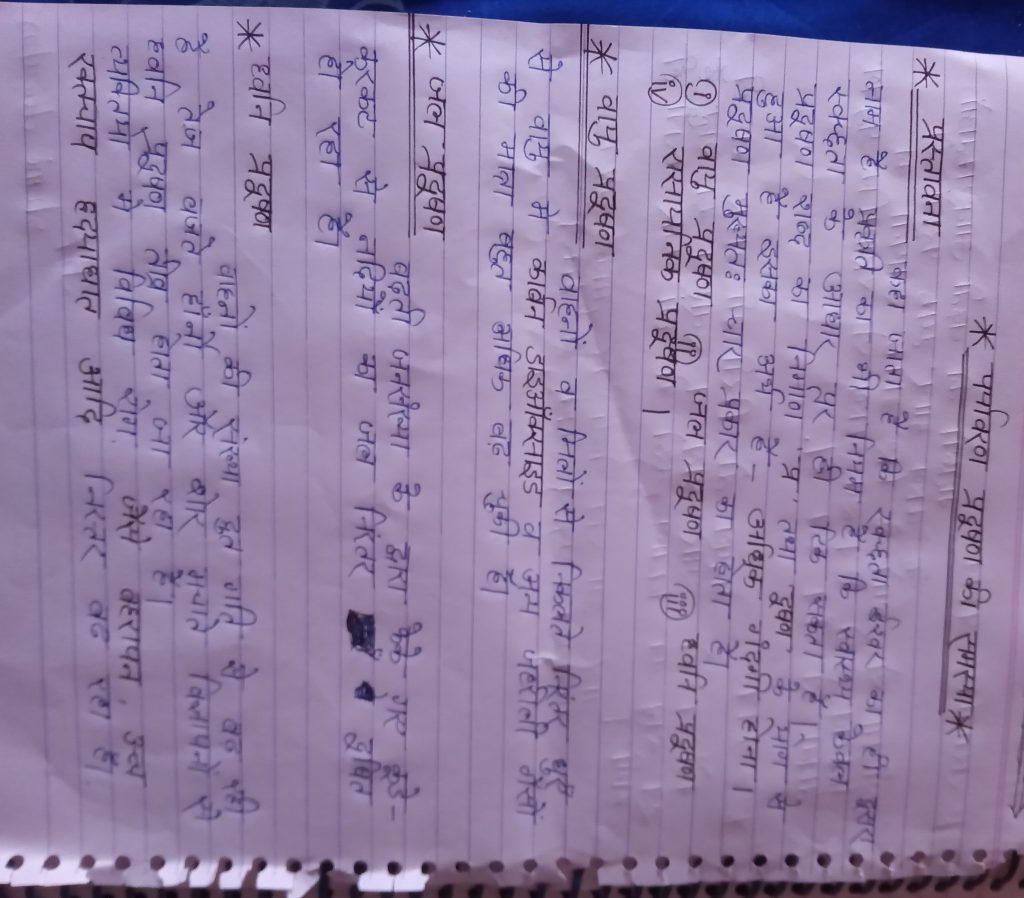 * पर्यावरण प्रदूषण की समस्या *
* प्रस्तावना
कहा जाता है कि स्वच्छता ईश्वर का ही दूसरा
नाम है। प्रकृति का भी नियम है कि स्वस्थ्य जीवन
स्वच्छता के आधार पर ही टिक सकता है।
प्रदूषण शब्द का निर्माण प्र तथा दूषण के योग से
हुआ है इसका अर्थ है - अधिक गंदगी होना।
प्रदूषण मुख्यतः चार प्रकार का होता है।
(i) वायु प्रदूषण (ii) जल प्रदूषण (iii) ध्वनि प्रदूषण
(iv) रसायनिक प्रदूषण।
* वायु प्रदूषण
वाहनों व मिलों से निकलते निरंतर धुएँ
से वायु में कार्बन डाइऑक्साइड व अन्य जहरीली गैसों
की मात्रा बहुत अधिक बढ़ चुकी है।
* जल प्रदूषण
बढ़ती जनसंख्या के द्वारा फेंके गए कूड़े-
करकट से नदियों का जल निरंतर दूषित
हो रहा है।
* ध्वनि प्रदूषण
वाहनों की संख्या द्रुत गति से बढ़ रही
है तेज बजते हॉर्नो और शोर मचाते विज्ञापनों से
ध्वनि प्रदूषण तीव्र होता जा रहा है।
व्यक्तियों में विविध रोग जैसे बहरापन, उच्च
रक्तचाप हृदयाघात आदि निरंतर बढ़ रहा है।